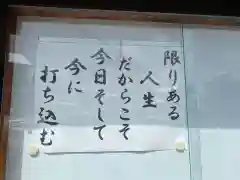 限りある
人生
だからこそ
今日そして
今に
打ち込む